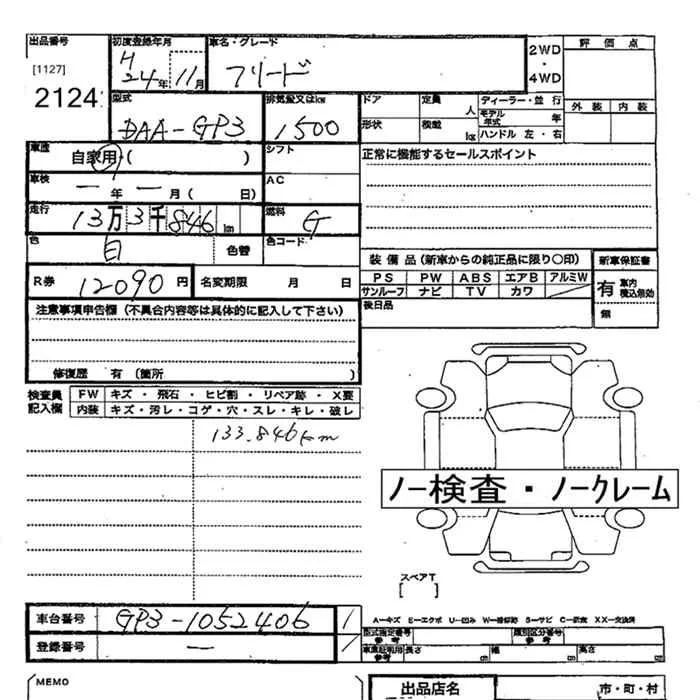 出品番号 初度登録年月 車名・グレード 2WD・4WD 評価点
[1127] H24年11月 フリード
2124
型式 排気量又はkw ドア 定員 人 ディーラー・並行 外装 内装
DAA-GP3 1500 形状 積載 kg モデル年式 年
ハンドル 左・右
車歴 自家用・( ) シフト 正常に機能するセールスポイント
車検 ー年ー月( 日) AC
走行 13万3千846km 燃料 G
色 白 色替 色コード
装備品(新車からの純正品に限り〇印) 新車保証書
R券 12090円 名変期限 月 日 PS PW ABS エアB アルミW 有 車内 積込無効
サンルーフ ナビ TV カワ
注意事項申告欄(不具合内容等は具体的に記入して下さい) 後日品 無
修復歴 有(箇所 )
検査員記入欄 FW キズ・飛石・ヒビ割・リペア跡・X要
内装 キズ・汚レ・コゲ・穴・スレ・キレ・破レ
133.846km
ノー検査・ノークレーム
スペアT
[ ]
車台番号 GP3-1052406 1 A-キズ E-エクボ U-凹み W-補修跡 S-サビ C-腐食 XX-交換済
型式指定番号 参考 類別区分番号 参考
登録番号 ー 車庫証明用 参考 長さ cm 幅 cm 高さ cm
MEMO 出品店名 市・町・村